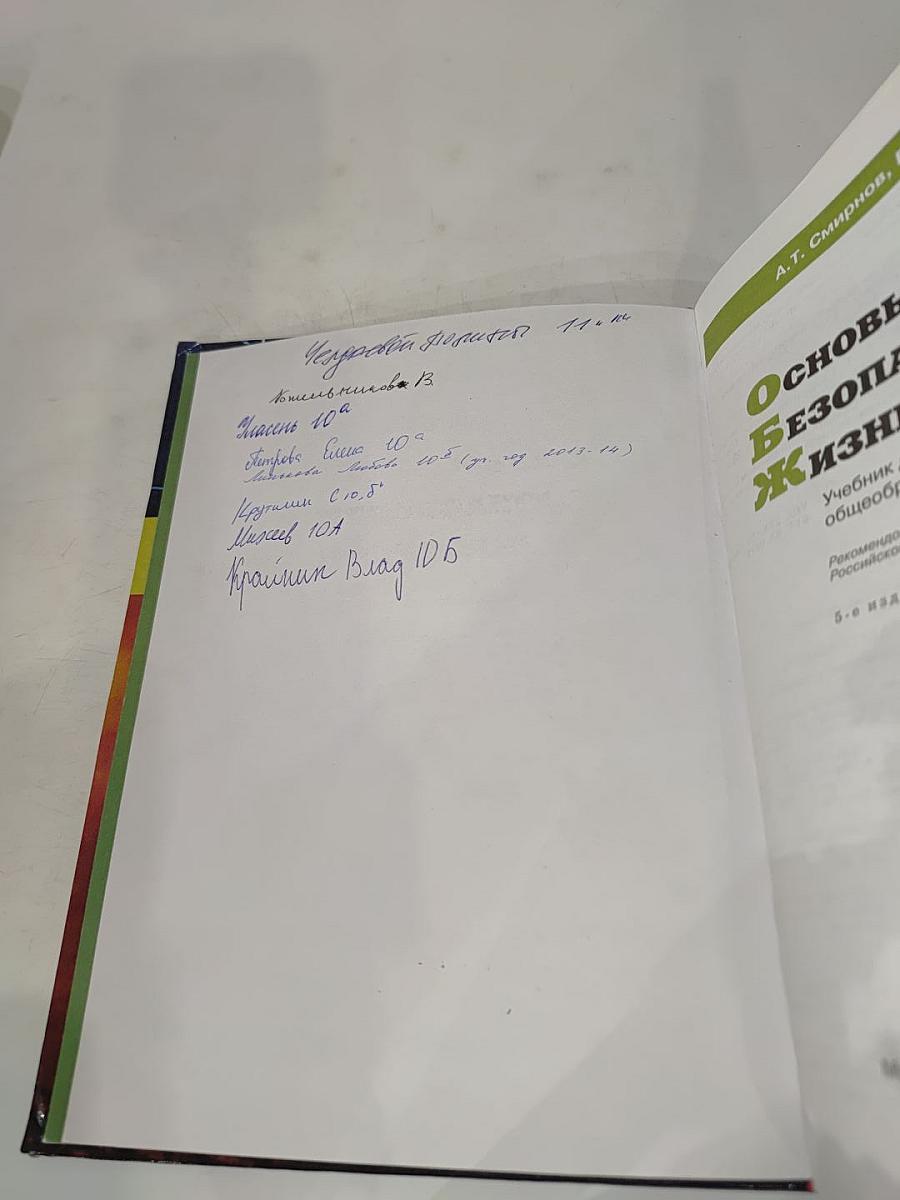 11 "кл
Котельников В.
Класень 10а
Петрова Елена 10а
Любовь 10Б (уч. год 2013-14)
Крутилин С 10,б"
Михеев 10А
Крайник Влад 10Б
А.Т. Смирнов,
Основы
Безопа
Жизне
Учебник
общеобр
Рекомендо
Российско
5-е изд